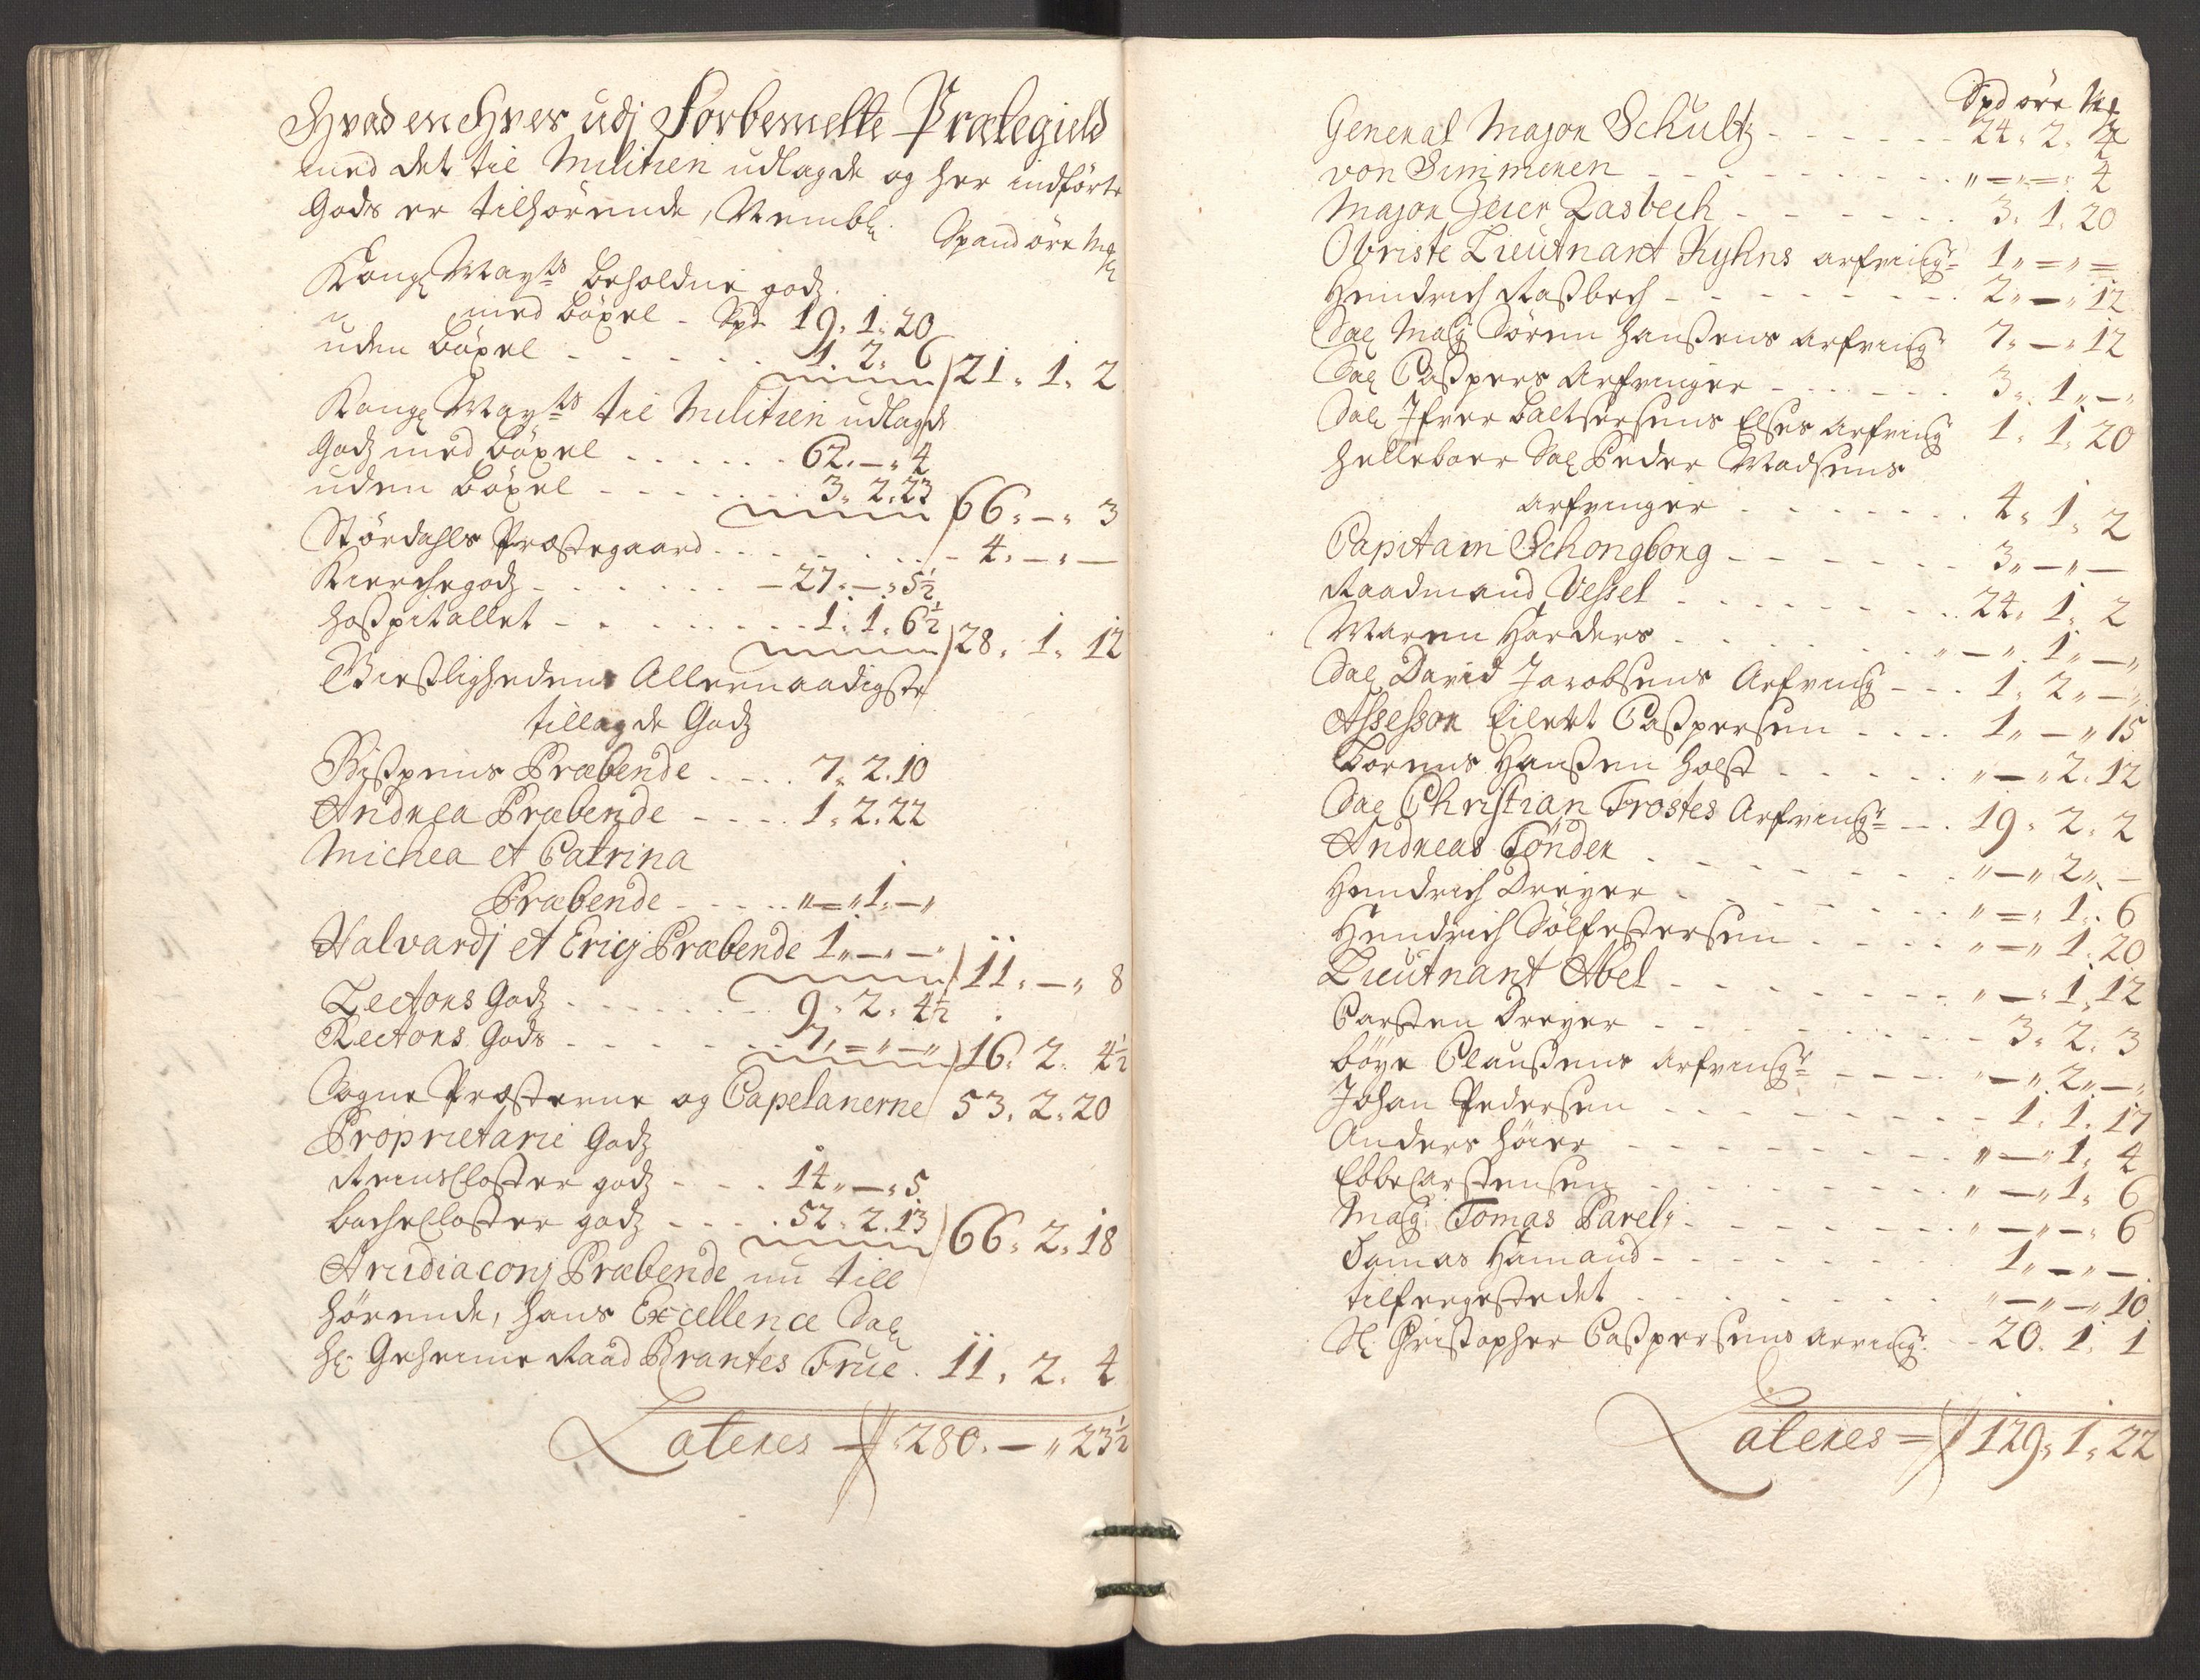 Hvad en hver udj Forbemelte Prætegield
med det til Militien udlagde og her indförte
Gods er tilhörende, Nembl:
Spand öre Mkl
Kongl Mayts beholdne godz
med böxel - Spd 19. 1. 20
uden böxel - - - - - 1. 2. 6 / 21. 1. 2
Kongl Mayts til Militien udlagde
godz med böxel . . . . . . 62. — " 4
uden böxel - - - - - . . 3. 2. 23 / 66. — " 3
Stördahls Præstegaard - - - - - . . . - 4. — . —
Kierchegodz - - - - - - — 27. — " 5½
Hospitallet - - - - - - - - 1. 1. 6½ / 28. 1. 12
Geistligheden Allernaadigste
tillagde Godz
Bispens Præbende - - - . 7. 2. 10
Andrea Præbende - - - - 1. 2. 22
Michea et Catrina
Præbende - - - - - " = " 1. — "
Halvardj et Ericj Præbende 1. — " — " / 11. — " 8
Lectors Godz . - - - - - - 9. 2. 4½
Rectors Gods - - - - - - 7. = " — " / 16. 2. 4½
Sogne Præsterne og Capelanerne 53. 2. 20
Proprietarie Godz
Reins Closter godz - - - . 14. — " 5
Bache Closter godz - - - . 52. 2. 13 / 66. 2. 18
Arcidiaconj Præbende nu till
hörende, hans Excellence Sal
Hr Geheime Raad Brantes Frue . 11. 2. 4
Lateres — 280. — " 23½
Spd öre Mkl
General Major Schultz - - - - - - 24. 2. 4
von Dimmenen - - - - - - - - - . " = " = 4
Major Jeier Zasbech - - - - - - 3. 1. 20
Obriste Lieutnant Kyhns arfvinger 1. = " =
Hendrich Rasbech - - - - - - - - . 2. — " 12
Sal Mag Sören Hanßens arfving 7. — " 12
Sal Caspers Arfvinger - - - - - - 3. 1. — "
Sal Ifver Baltsersens Elses arfving 1. 1. 20
Helleboer Sal Peder Madsens
arfvinger . . . . . . . . 4. 1. 2
Capitain Schongborg - - - - - - 3. — " —
Raadmand Vessel - - - - - - - . 24. 1. 2
Maren Harders - - - - - - - - " — " 1. — "
Sal David Jacobsens Arfving - - - 1. 2. — "
Assessor Eilert Caspersen - - - - 1. — " 15
Lorens Hanßen Holst - - - - - . " — " 2. 12
Sal Christian Frostes Arfving — . 19. 2. 2
Andreas Tönder - - - - - - - . " — " 2. —
Hendrich Dreyer - - - - - - - - " = " 1. 6
Hendrich Sölfestersen - - - - . " = " 1. 20
Lieutnant Abel - - - - - - - - " — " 1. 12
Carsten Dreyer - - - - - - - - - 3. 2. 3
Böye Claußens arfving - - - - . " — " 2. — "
Johan Pedersen - - - - - - - - - 1. 1. 17
Anders Höier - - - - - - - - . " — " 1. 4
Ebbe Carstensen - - - - - - - . " — " 1. 6
Mag. Tomas Parelj - - - - - - - . " — " — " 6
Tomas Hamand - - - - - - - - 1. — " —
Tilfergestedet - - - - - - - - " — " — " 10
Sl. Christopher Caspersens arving. - 20. 1. 1
Lateres = 129. 1. 22